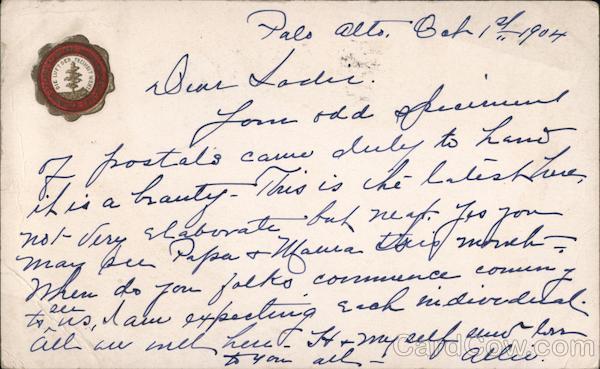 Palo Alto. Oct 1st, 1904
Dear Sadie.
Your odd specimen
of postals came duly to hand
it is a beauty - This is the latest here,
not very elaborate but neat. Yes you
may see Papa & Mama this month -
When do you folks commence coming
to see us, I am expecting each individual.
All are well here - H & myself send love
to you all - Allie.
CardCow.com